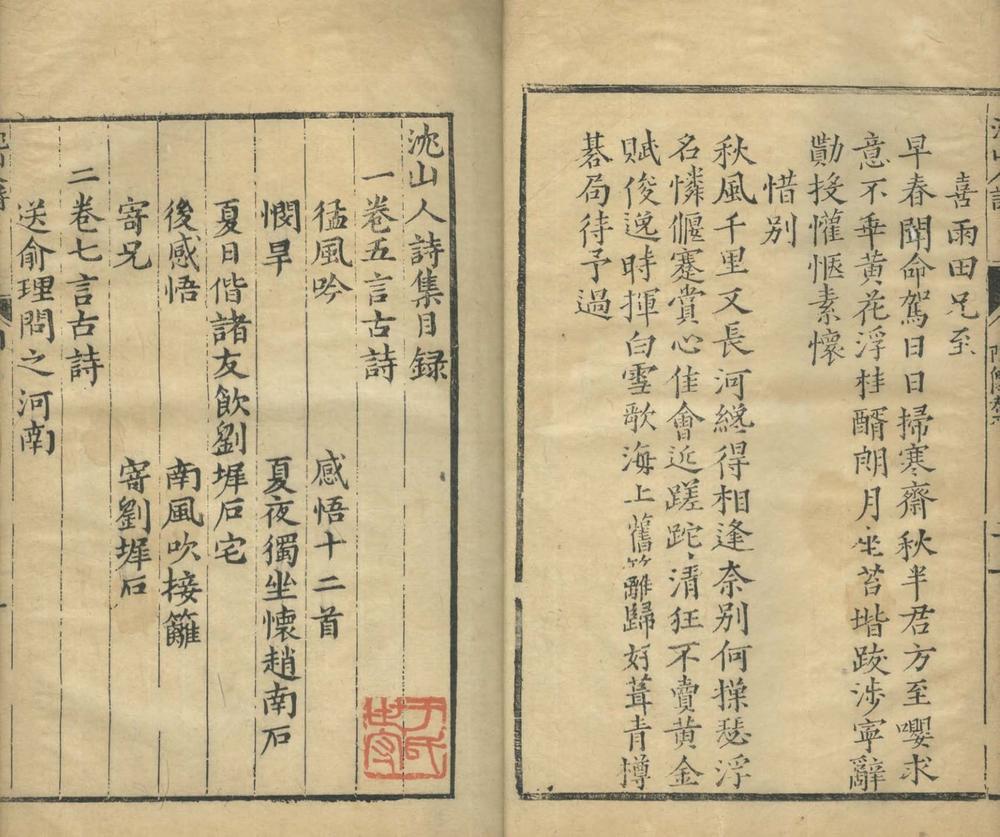 喜雨田兄至
早春聞命駕日日掃寒齋秋半君方至嚶求
意不乖黄花浮桂醑朗月坐苔堦跋涉寧辭
勩授懽愜素懷
惜别
秋風千里又長河纔得相逢奈别何操瑟浮
名憐偃蹇賞心佳會近蹉跎清狂不賣黄金
賦俊逸時揮白雪歌海上舊籬歸好葺青樽
碁局待予過
洮山人詩集目録
一卷五言古詩
猛風吟 感悟十二首
憫旱 夏夜獨坐懷趙南石
夏日偕諸友飲劉墀石宅
後感悟 南風吹接䍦
寄兄 寄劉墀石
二卷七言古詩
送俞理問之河南